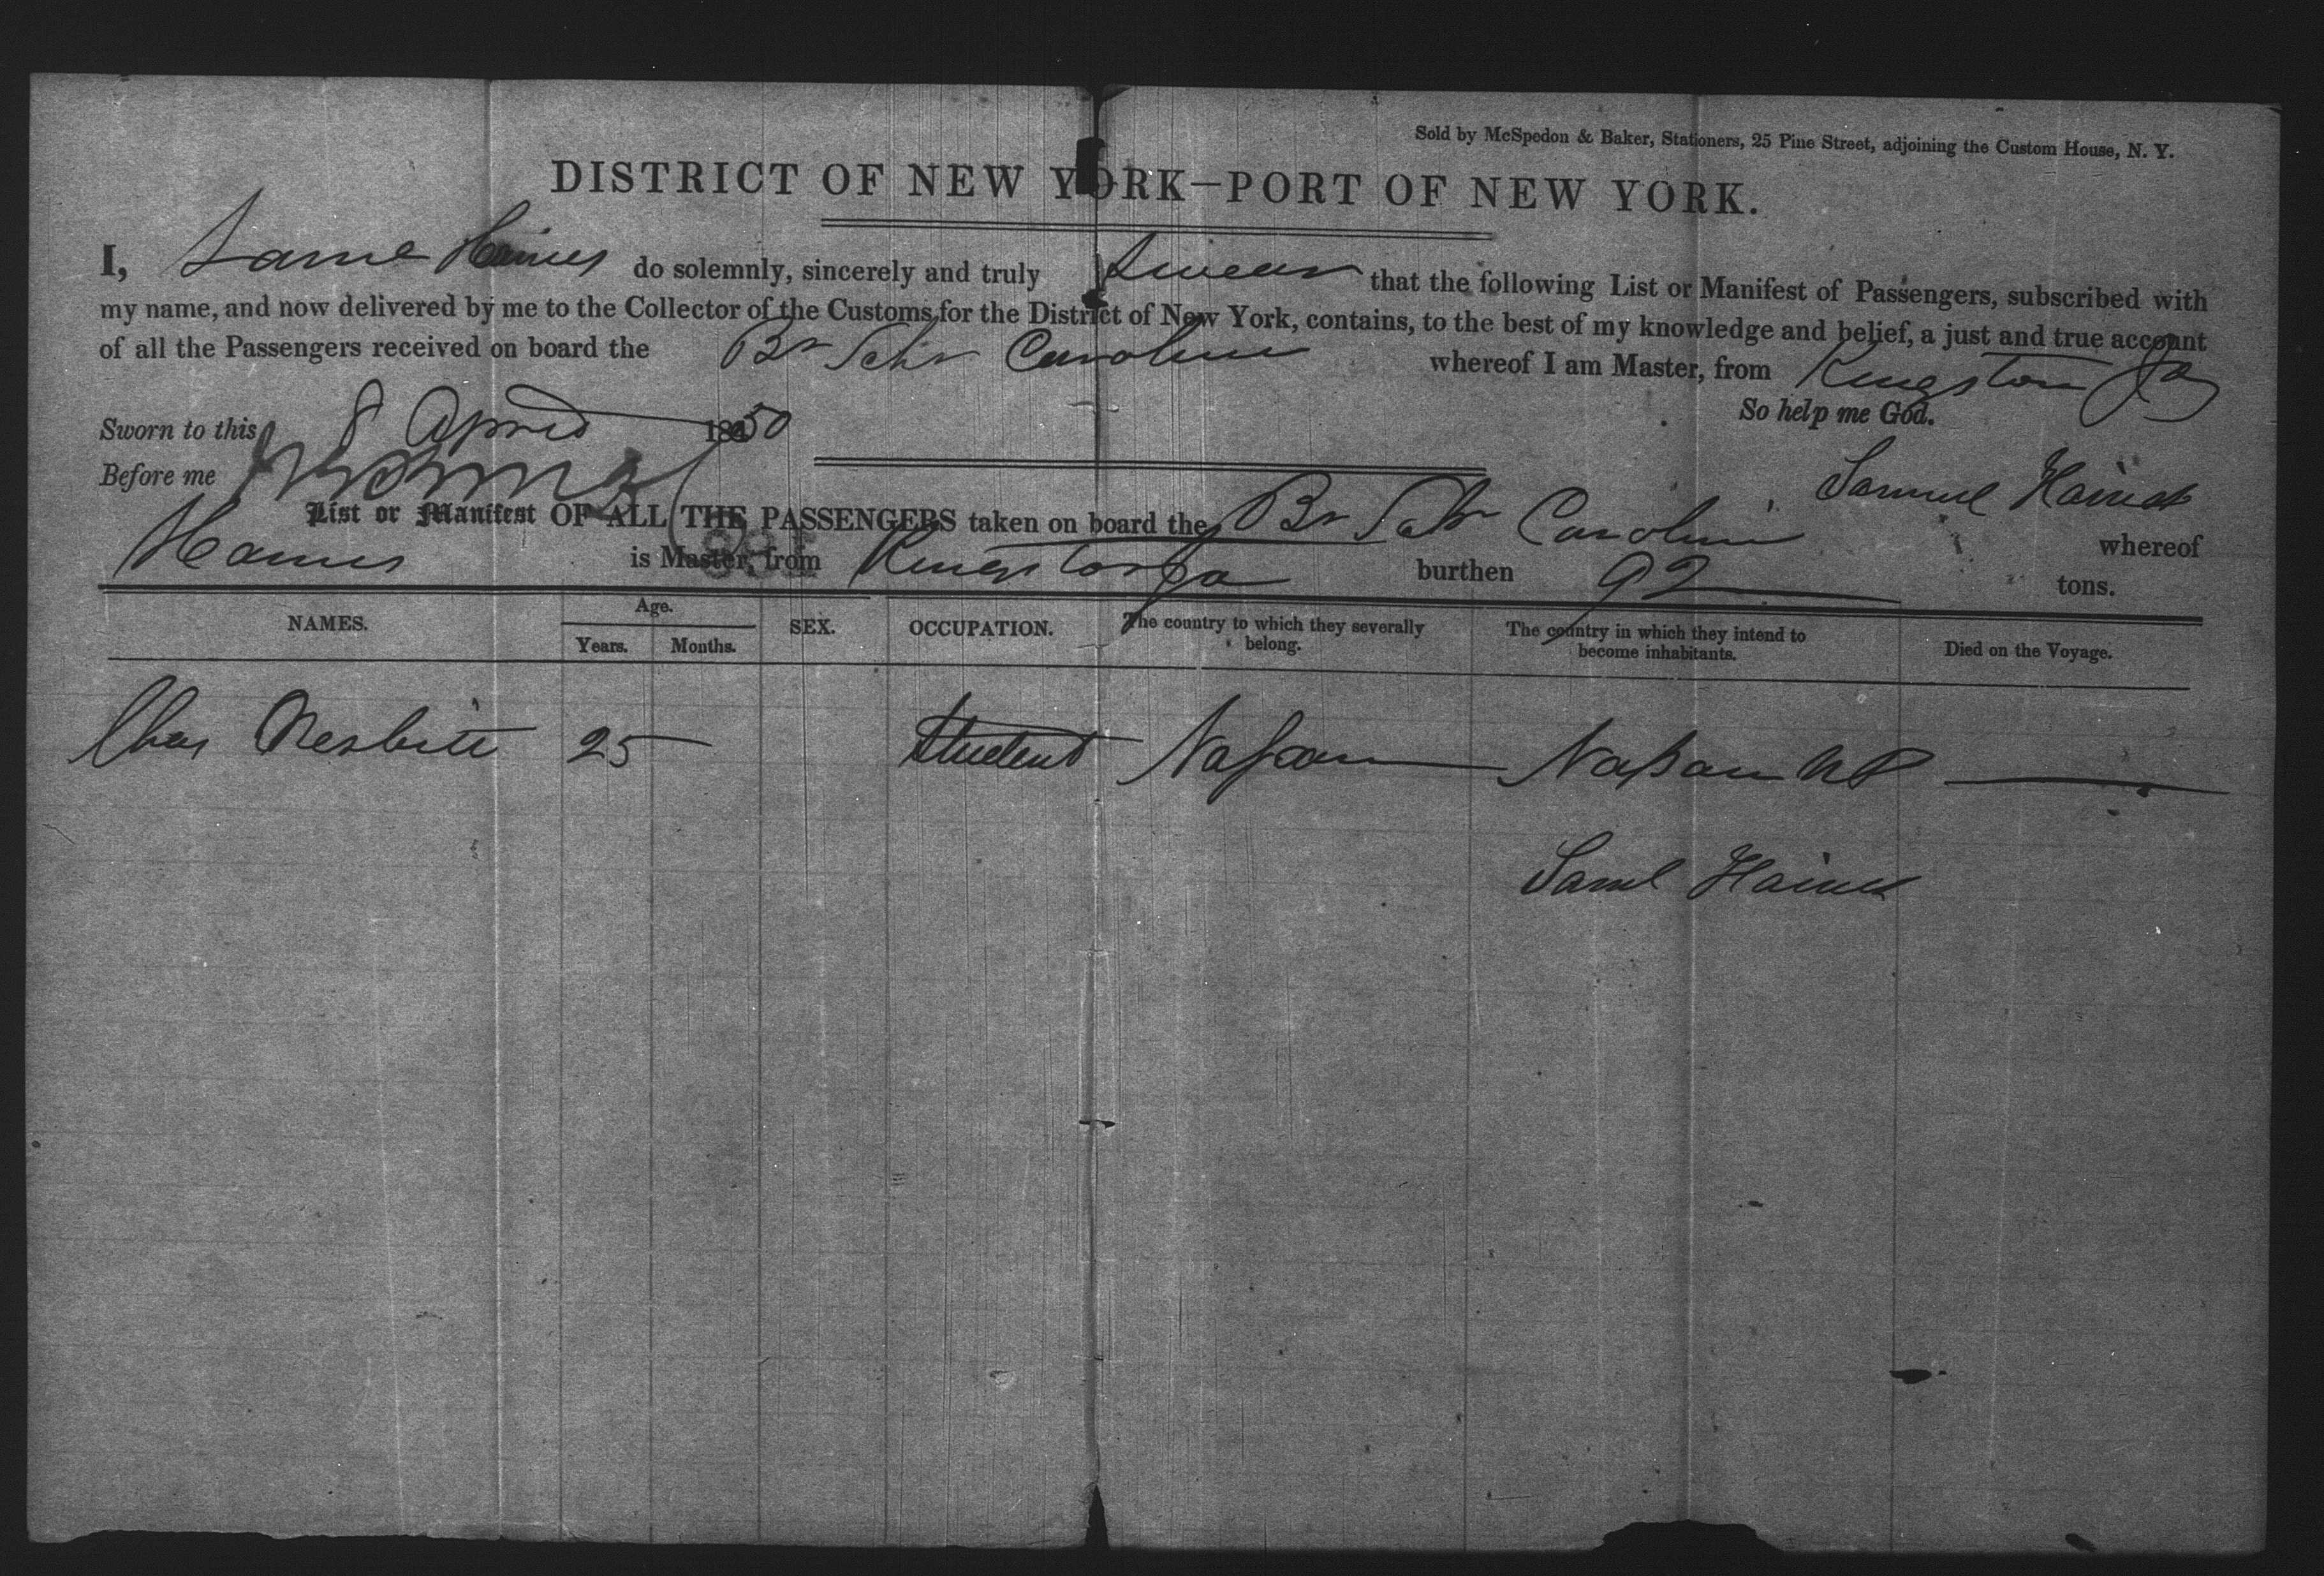 Sold by McSpedon & Baker, Stationers, 25 Pine Street, adjoining the Custom House, N. Y.
DISTRICT OF NEW YORK—PORT OF NEW YORK.
I, Saml Haines do solemnly, sincerely and truly Swear that the following List or Manifest of Passengers, subscribed with
my name, and now delivered by me to the Collector of the Customs for the District of New York, contains, to the best of my knowledge and belief, a just and true account
of all the Passengers received on board the Br Schr Caroline whereof I am Master, from Kingston Ja
So help me God.
Sworn to this 8 April 1850
Before me
Samuel Haines
List or Manifest OF ALL THE PASSENGERS taken on board the Br Schr Caroline whereof
Haines is Master, from Kingston Ja burthen 92 tons.
NAMES. Age. Years. Months. SEX. OCCUPATION. The country to which they severally belong. The country in which they intend to become inhabitants. Died on the Voyage.
Chas Nesbitt 25 Student Nassau Nassau NP
Saml Haines